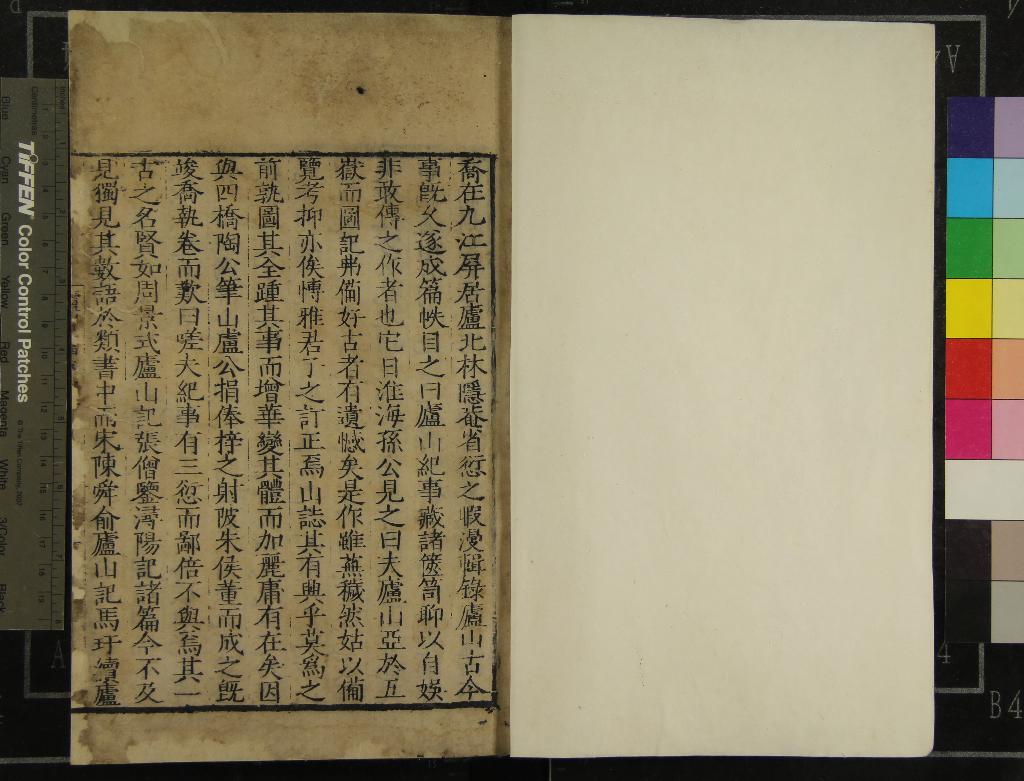 喬在九江屏居廬北林隱菴省愆之暇漫輯錄廬山古今
事旣久遂成篇帙目之曰廬山紀事藏諸篋笥聊以自娛
非敢傳之作者也它日淮海孫公見之曰夫廬山亞於五
嶽而圖記弗備好古者有遺憾矣是作雖蕪穢然姑以備
覽考抑亦俟愽雅君子之訂正焉山誌其有興乎莫爲之
前孰圖其全踵其事而增華變其體而加麗庸有在矣因
與四橋陶公筆山盧公捐俸梓之射陂朱侯董而成之旣
竣喬執卷而歎曰嗟夫紀事有三愆而鄙倍不與焉其一
古之名賢如周景式廬山記張僧鑒潯陽記諸篇今不及
見獨見其數語於類書中而宋陳舜俞廬山記馬玗續廬
TIFFEN Color Control Patches
© The Tiffen Company, 2007
Centimetres
Inches
Blue
Cyan
Green
Yellow
Red
Magenta
White
3/Color
Black
B4
A4